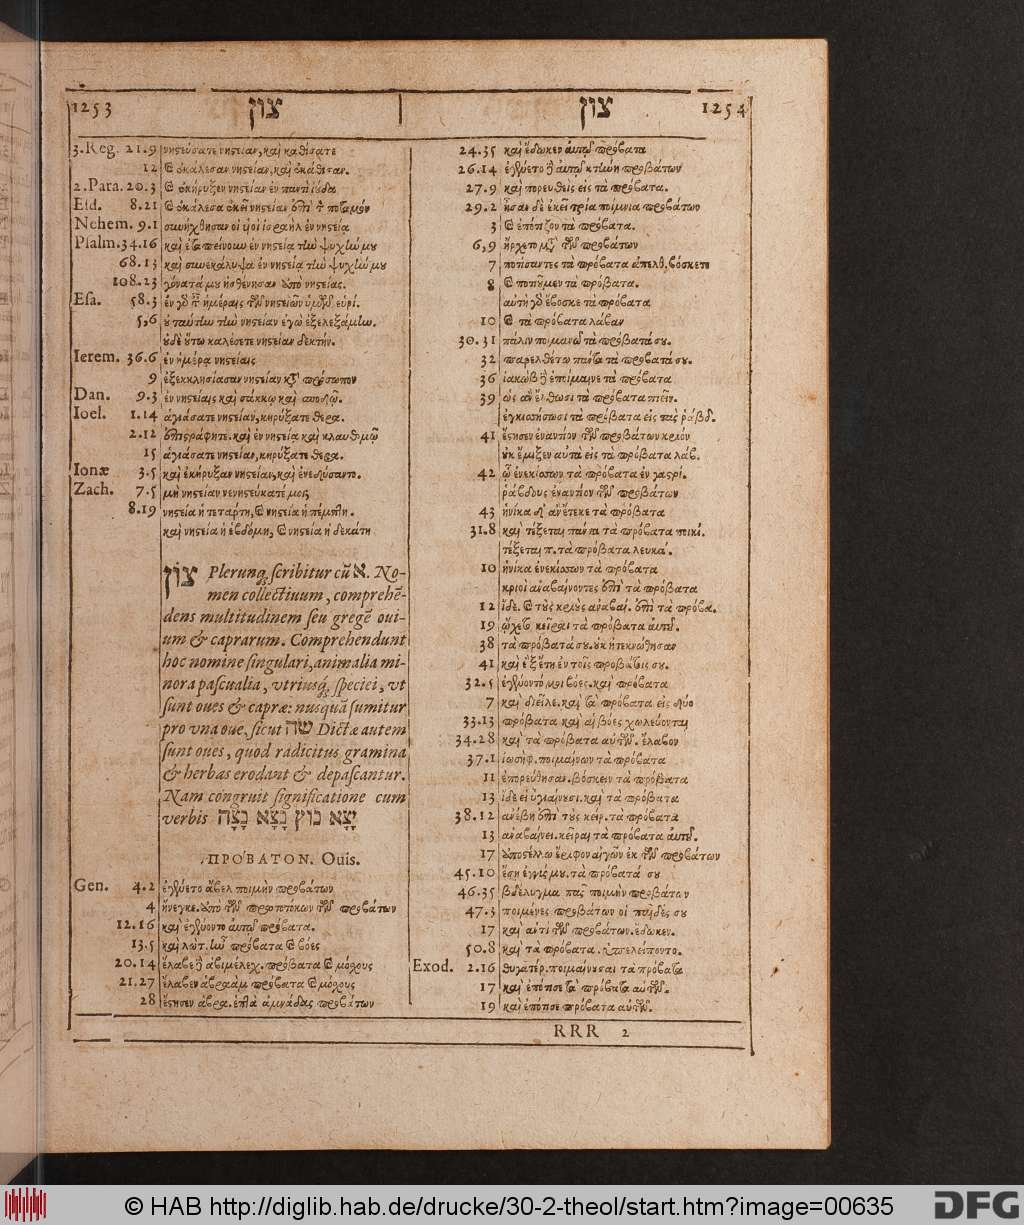 1253 צון צון 1254
3.Reg. 21.9 νηςεύσατε νηςείαν, καὶ καθίσατε
12 ἐκάλεσαν νηςείαν, καὶ ἐκάθισαν.
2.Para. 20.3 ἐκήρυξεν νηςείαν ἐν παντὶ ἰούδα
Esd. 8.21 ἐκάλεσα ἐκεῖ νηςείαν ἐπὶ τ ποταμόν
Nehem. 9.1 συνήχθησαν οἱ υἱοὶ ἰσραὴλ ἐν νηςείᾳ
Psalm. 34.16 ἐν νηςείᾳ τὴν ψυχίω μου
68.13 καὶ συνεκάλυψα ἐν νηςείᾳ τὴν ψυχίω μου
108.23 γόνατά μου ἠσθένησαν ὑπὸ νηςείας.
Esa. 58.3 ἡμέραις τῶν νηςειῶν ὑμῶν εὑρί.
5,6 οὐ ταύτην τὴν νηςείαν ἐγὼ ἐξελεξάμην.
οὐδὲ οὕτω καλέσετε νηςείαν δεκτήν.
Ierem. 36.6 ἐν ἡμέρᾳ νηςείας
9 ἐξεκκλησίασαν νηςείαν κτ πρόσωπον
Dan. 9.3 ἐν νηςείαις καὶ σάκκῳ καὶ σποδῷ.
Ioel. 1.14 ἁγιάσατε νηςείαν, κηρύξατε θερα.
2.12 ἐπιςράφητε. καὶ ἐν νηςείᾳ καὶ κλαυθμῷ
15 ἁγιάσατε νηςείαν, κηρύξατε θερα.
Ionæ 3.5 καὶ ἐκήρυξαν νηςείαν, καὶ ἐνεδύσαντο.
Zach. 7.5 μὴ νηςείαν νενηςεύκατέ μοι;
8.19 νηςεία ἡ τετάρτη, νηςεία ἡ πέμπτη.
καὶ νηςεία ἡ ἑβδόμη, νηςεία ἡ δεκάτη
צוֹן Plerunq; scribitur cū א. No-
men collectiuum, comprehē-
dens multitudinem seu gregē oui-
um & caprarum. Comprehendunt
hoc nomine singulari, animalia mi-
nora pascualia, vtriusq; speciei, vt
sunt oues & capræ: nusquā sumitur
pro vna oue, sicut שה Dictæ autem
sunt oues, quod radicitus gramina
& herbas erodant & depascantur.
Nam congruit significatione cum
verbis יָצָא נוץ נָצָא נָצָה
ΠΡΟΒΑΤΟΝ. Ouis.
Gen. 4.2 ἐγένετο ἄβελ ποιμὴν προβάτων
4 ἤνεγκε. ἀπὸ τῶν πρωτοτόκων τῶν προβάτων
12.16 καὶ ἐγένοντο αὐτῷ πρόβατα.
13.5 καὶ λώτ. ἦν πρόβατα βόες
20.14 ἔλαβε ἀβιμέλεχ. πρόβατα μόσχους
21.27 ἔλαβεν ἀβραὰμ πρόβατα μόσχους
28 ἔςησεν ἀβρα. ἑπτὰ ἀμνάδας προβάτων
24.35 καὶ ἔδωκεν αὐτῷ πρόβατα
26.14 ἐγένετο αὐτῷ κτήνη προβάτων
27.9 καὶ πορευθεὶς εἰς τὰ πρόβατα.
29.2 ἦσαν δὲ ἐκεῖ τρία ποίμνια προβάτων
3 ἐπότιζον τὰ πρόβατα.
6,9 ἤρχετο τῶν προβάτων
7 ποτίσαντες τὰ πρόβατα ἀπελθ. βόσκετε
8 ποτιοῦμεν τὰ πρόβατα.
αὐτὴ ἔβοσκε τὰ πρόβατα
10 τὰ πρόβατα λάβαν
30.31 πάλιν ποιμανῶ τὰ πρόβατά σου.
32 παρελθέτω πάντα τὰ πρόβατά σου.
36 ἰακὼβ ἐποίμαινε τὰ πρόβατα
39 ὡς ἂν ἔλθωσι τὰ πρόβατα πιεῖν.
ἐγκισσήσωσι τὰ πρόβατα εἰς τὰς ῥάβδ.
41 ἔςησεν ἐναντίον τῶν προβάτων κριόν
οὐκ ἔμιξεν αὐτὰ εἰς τὰ πρόβατα λάβ.
42 ἐνεκίσσων τὰ πρόβατα ἐν γαςρί.
ῥάβδους ἐναντίον τῶν προβάτων
43 ἡνίκα δ' ἂν ἔτεκε τὰ πρόβατα
31.8 καὶ τέξεται πάντα τὰ πρόβατα ποικί.
τέξεται π. τὰ πρόβατα λευκά.
10 ἡνίκα ἐνεκίσσων τὰ πρόβατα
κριοὶ ἀναβαίνοντες ἐπὶ τὰ πρόβατα
12 ἴδε. τοὺς κριοὺς ἀναβαί. ἐπὶ τὰ πρόβα.
19 ᾤχετο κεῖραι τὰ πρόβατα αὐτοῦ.
38 τὰ πρόβατά σου. οὐκ ἠτεκνώθησαν
41 καὶ ἓξ ἔτη ἐν τοῖς προβάτοις σου.
32.5 ἐγένοντό μοι βόες. καὶ πρόβατα
7 καὶ διεῖλε. καὶ τὰ πρόβατα εἰς δύο
33.13 πρόβατα καὶ αἱ βόες χωλεύονται
34.28 καὶ τὰ πρόβατα αὐτῶν. ἔλαβον
37.1 ἰωσὴφ. ποιμαίνων τὰ πρόβατα
11 ἐπορεύθησαν. βόσκειν τὰ πρόβατα
13 ἴδε εἰ ὑγιαίνουσι. καὶ τὰ πρόβατα
38.12 ἀνέβη ἐπὶ τοὺς κείρ. τὰ πρόβατα
13 ἀναβαίνει. κεῖραι τὰ πρόβατα αὐτοῦ.
17 ἀποςέλλω ἔριφον αἰγῶν ἐκ τῶν προβάτων
45.10 ἔσῃ ἐγγύς μου. τὰ πρόβατά σου
46.35 βδέλυγμα πᾶς ποιμὴν προβάτων
47.3 ποιμένες προβάτων οἱ παῖδές σου
17 καὶ ἀντὶ τῶν προβάτων. ἔδωκεν.
50.8 καὶ τὰ πρόβατα. ὑπελείποντο.
Exod. 2.16 θυγατέρ. ποιμαίνουσαι τὰ πρόβατα
17 καὶ ἐπότισε τὰ πρόβατα αὐτῶν.
19 καὶ ἐπότισε πρόβατα αὐτῶν.
RRR 2
© HAB http://diglib.hab.de/drucke/30-2-theol/start.htm?image=00635 DFG